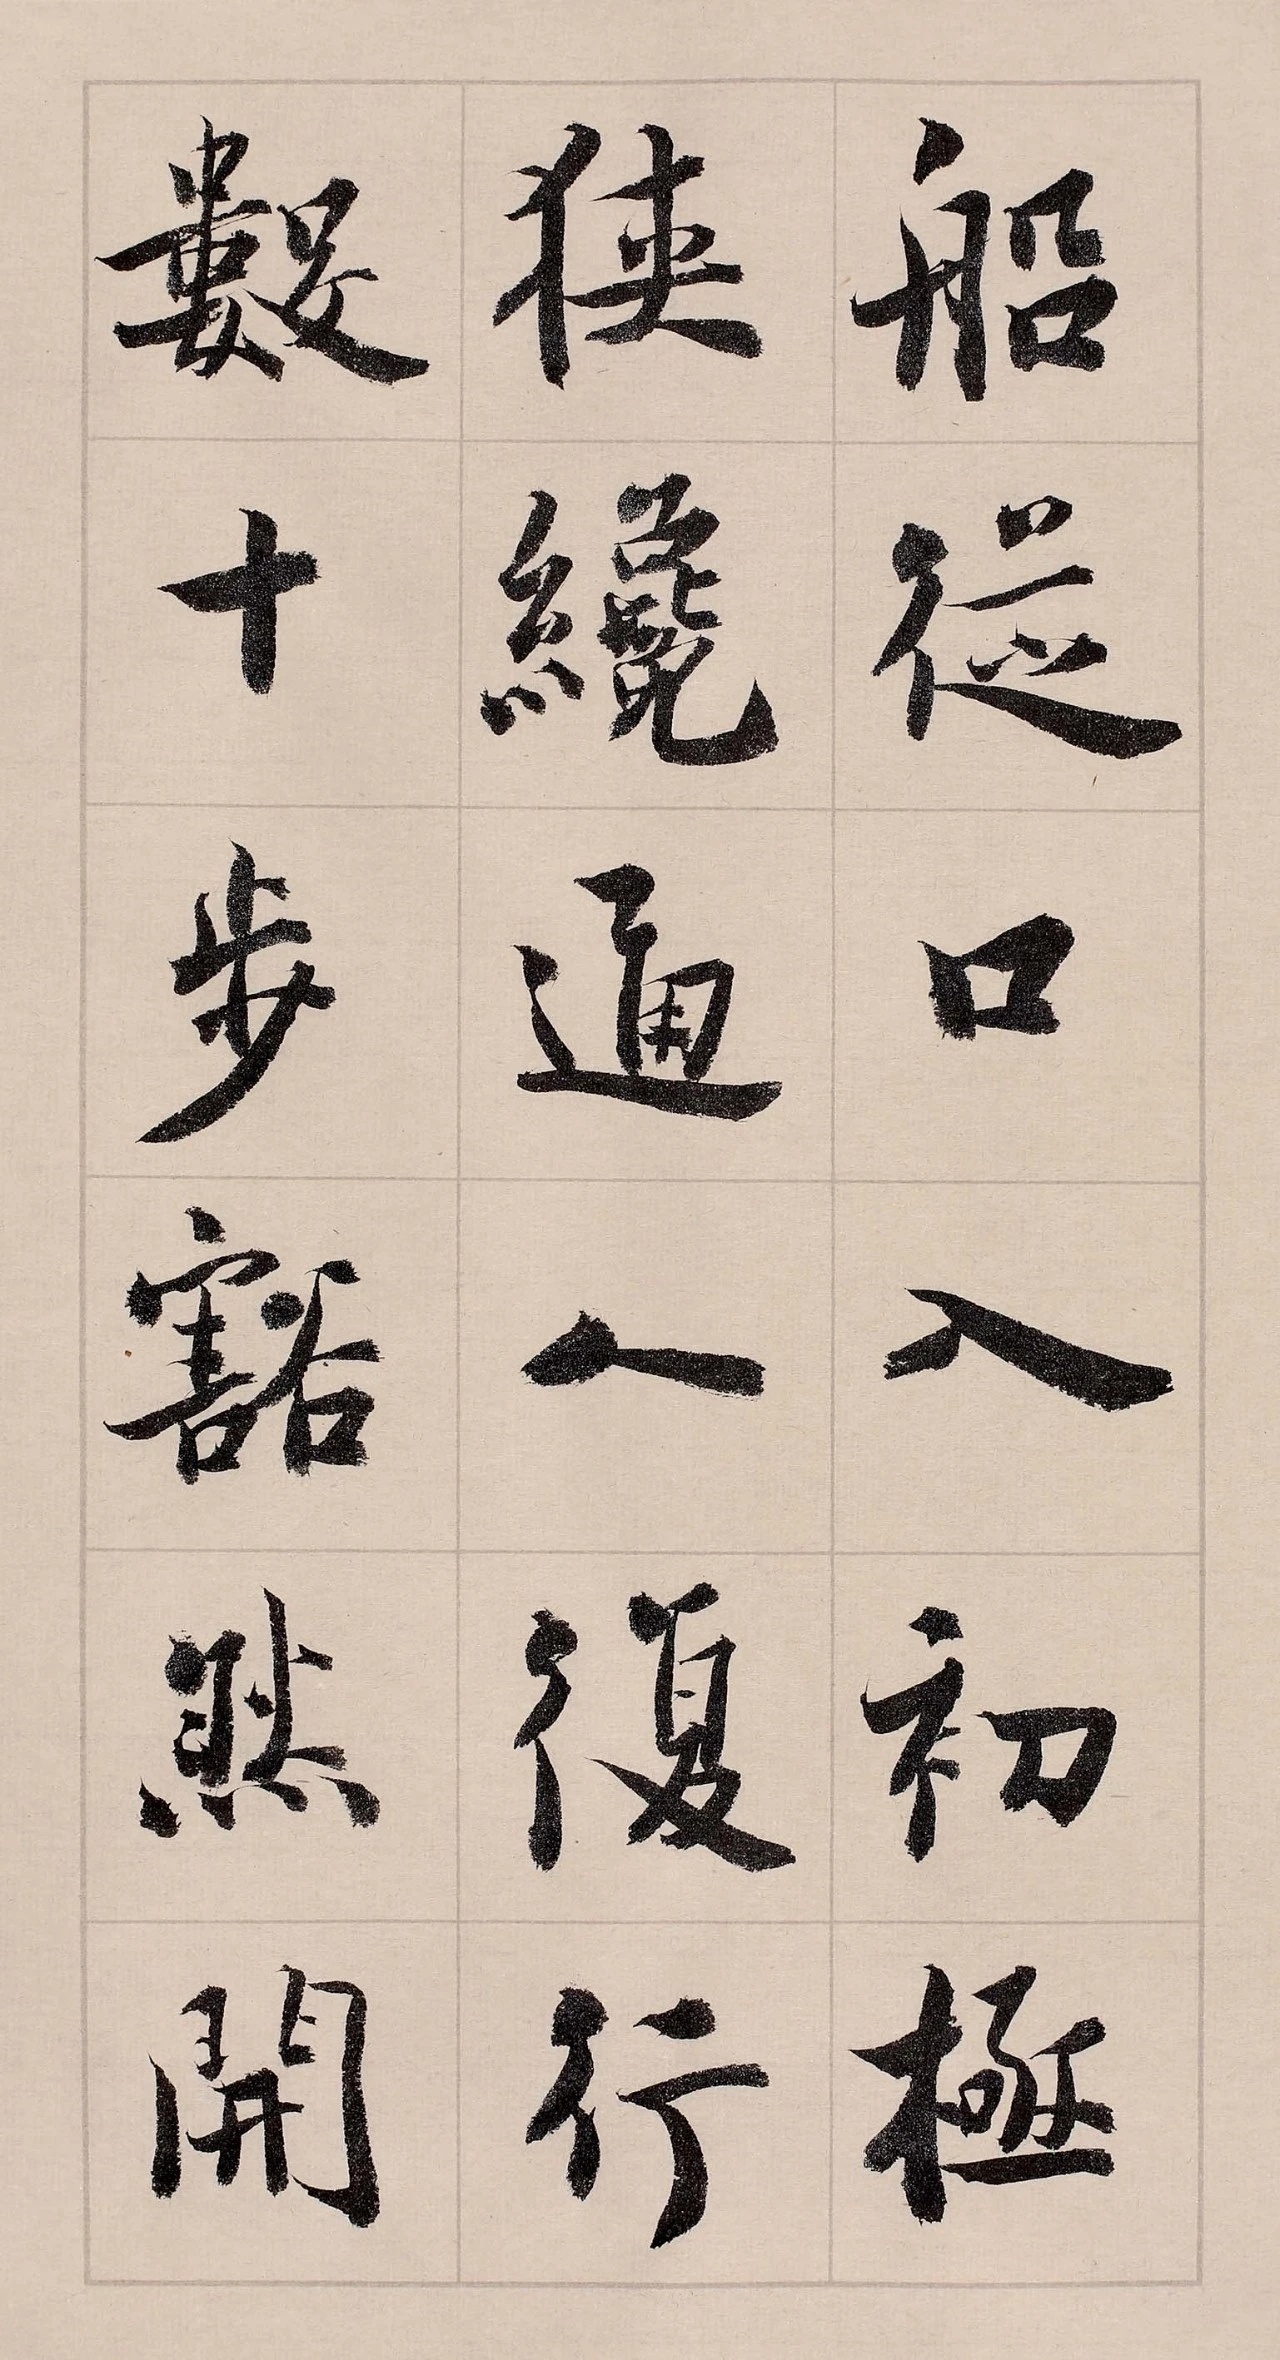 船從口入初極
狹纔通人復行
數十步豁然開